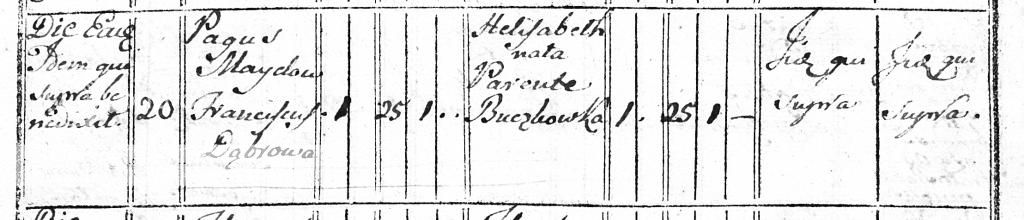 Die Ejusd
Idem qui
supra be
nedixit.
20
Pagus
Maydow
Franciscus
Dąbrowa
1 25 1
Helisabeth
nata
Parente
Buczkowska
1 25 1 —
Iidem qui
supra
Iidem qui
supra.